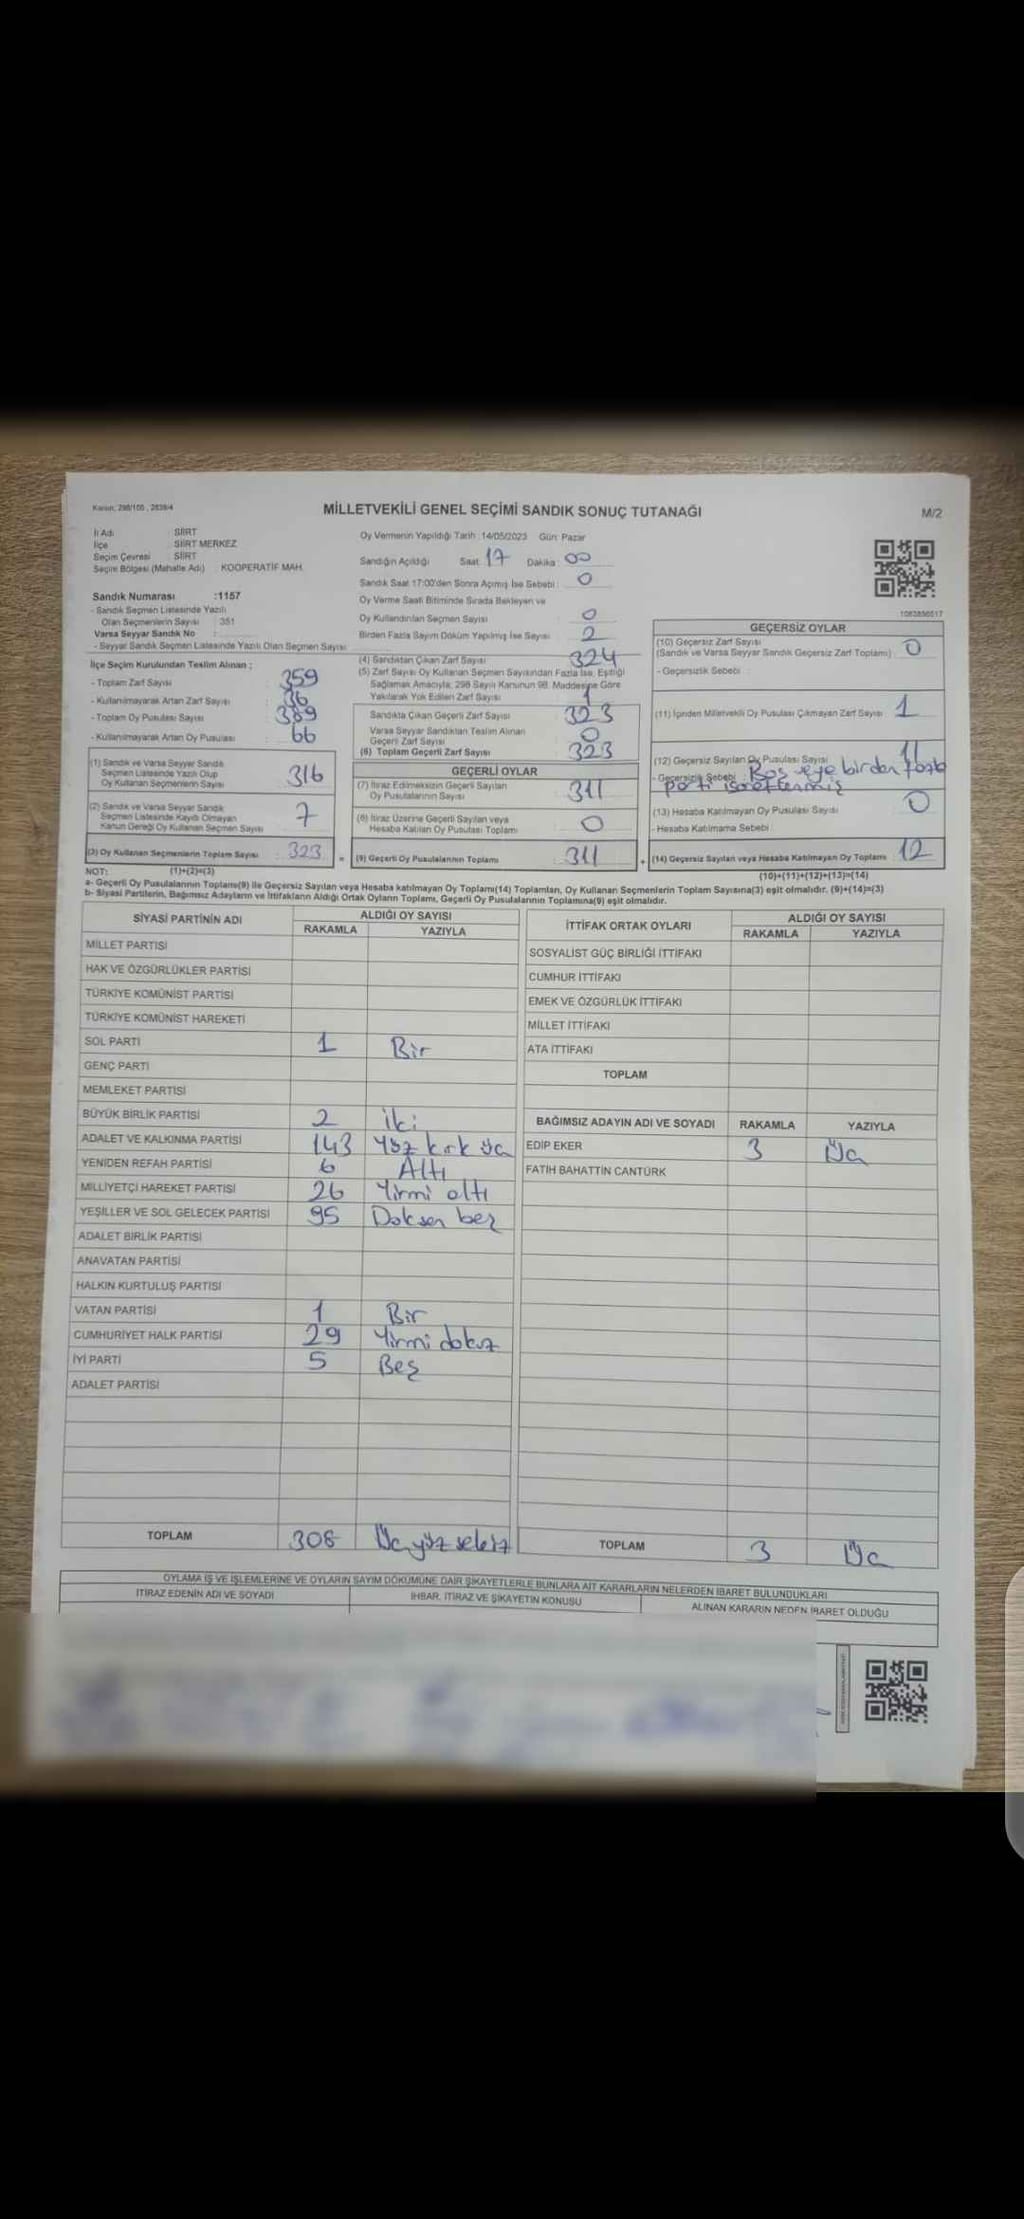 Kanun; 298/105 , 2839/4
MİLLETVEKİLİ GENEL SEÇİMİ SANDIK SONUÇ TUTANAĞI
M/2
İl Adı : SİİRT
İlçe : SİİRT MERKEZ
Seçim Çevresi : SİİRT
Seçim Bölgesi (Mahalle Adı) : KOOPERATİF MAH.
Sandık Numarası :1157
- Sandık Seçmen Listesinde Yazılı
Olan Seçmenlerin Sayısı : 351
Varsa Seyyar Sandık No :
- Seyyar Sandık Seçmen Listesinde Yazılı Olan Seçmen Sayısı
İlçe Seçim Kurulundan Teslim Alınan ;
- Toplam Zarf Sayısı : 359
- Kullanılmayarak Artan Zarf Sayısı : 36
- Toplam Oy Pusulası Sayısı : 389
- Kullanılmayarak Artan Oy Pusulası : 66
(1) Sandık ve Varsa Seyyar Sandık
Seçmen Listesinde Yazılı Olup
Oy Kullanan Seçmenlerin Sayısı 316
(2) Sandık ve Varsa Seyyar Sandık
Seçmen Listesinde Kayıtlı Olmayan
Kanun Gereği Oy Kullanan Seçmen Sayısı 7
(3) Oy Kullanan Seçmenlerin Toplam Sayısı : 323
Oy Vermenin Yapıldığı Tarih :14/05/2023 Gün: Pazar
Sandığın Açıldığı Saat: 17 Dakika : 00
Sandık Saat 17:00'den Sonra Açımış İse Sebebi : 0
Oy Verme Saati Bitiminde Sırada Bekleyen ve
Oy Kullandırılan Seçmen Sayısı : 0
Birden Fazla Sayım Döküm Yapılmış İse Sayısı : 2
(4) Sandıktan Çıkan Zarf Sayısı 324
(5) Zarf Sayısı Oy Kullanan Seçmen Sayısından Fazla İse, Eşitliği
Sağlamak Amacıyla; 298 Sayılı Kanunun 98. Maddesine Göre
Yakılarak Yok Edilen Zarf Sayısı 1
Sandıkta Çıkan Geçerli Zarf Sayısı : 323
Varsa Seyyar Sandıktan Teslim Alınan
Geçerli Zarf Sayısı : 0
(6) Toplam Geçerli Zarf Sayısı : 323
GEÇERLİ OYLAR
(7) İtiraz Edilmeksizin Geçerli Sayılan
Oy Pusulalarının Sayısı 311
(8) İtiraz Üzerine Geçerli Sayılan veya
Hesaba Katılan Oy Pusulası Toplamı 0
= (9) Geçerli Oy Pusulalarının Toplamı 311
1083856517
GEÇERSİZ OYLAR
(10) Geçersiz Zarf Sayısı
(Sandık ve Varsa Seyyar Sandık Geçersiz Zarf Toplamı) : 0
- Geçersizlik Sebebi :
(11) İçinden Milletvekili Oy Pusulası Çıkmayan Zarf Sayısı : 1
(12) Geçersiz Sayılan Oy Pusulası Sayısı 11
- Geçersizlik Sebebi : Boş veya birden fazla
parti işaretlenmiş
(13) Hesaba Katılmayan Oy Pusulası Sayısı 0
- Hesaba Katılmama Sebebi :
+ (14) Geçersiz Sayılan veya Hesaba Katılmayan Oy Toplamı : 12
NOT: (1)+(2)=(3)
(10)+(11)+(12)+(13)=(14)
a- Geçerli Oy Pusulalarının Toplamı(9) ile Geçersiz Sayılan veya Hesaba katılmayan Oy Toplamı(14) Toplamları, Oy Kullanan Seçmenlerin Toplam Sayısına(3) eşit olmalıdır. (9)+(14)=(3)
b- Siyasi Partilerin, Bağımsız Adayların ve İttifakların Aldığı Ortak Oyların Toplamı, Geçerli Oy Pusulalarının Toplamına(9) eşit olmalıdır.
SİYASİ PARTİNİN ADI
ALDIĞI OY SAYISI
RAKAMLA YAZIYLA
MİLLET PARTİSİ
HAK VE ÖZGÜRLÜKLER PARTİSİ
TÜRKİYE KOMÜNİST PARTİSİ
TÜRKİYE KOMÜNİST HAREKETİ
SOL PARTİ 1 Bir
GENÇ PARTİ
MEMLEKET PARTİSİ
BÜYÜK BİRLİK PARTİSİ 2 İki
ADALET VE KALKINMA PARTİSİ 143 Yüz kırk üç
YENİDEN REFAH PARTİSİ 6 Altı
MİLLİYETÇİ HAREKET PARTİSİ 26 Yirmi altı
YEŞİLLER VE SOL GELECEK PARTİSİ 95 Doksan beş
ADALET BİRLİK PARTİSİ
ANAVATAN PARTİSİ
HALKIN KURTULUŞ PARTİSİ
VATAN PARTİSİ 1 Bir
CUMHURİYET HALK PARTİSİ 29 Yirmi dokuz
İYİ PARTİ 5 Beş
ADALET PARTİSİ
TOPLAM 308 Üç yüz sekiz
İTTİFAK ORTAK OYLARI
ALDIĞI OY SAYISI
RAKAMLA YAZIYLA
SOSYALİST GÜÇ BİRLİĞİ İTTİFAKI
CUMHUR İTTİFAKI
EMEK VE ÖZGÜRLÜK İTTİFAKI
MİLLET İTTİFAKI
ATA İTTİFAKI
TOPLAM
BAĞIMSIZ ADAYIN ADI VE SOYADI RAKAMLA YAZIYLA
EDİP EKER 3 Üç
FATİH BAHATTİN CANTÜRK
TOPLAM 3 Üç
OYLAMA İŞ VE İŞLEMLERİNE VE OYLARIN SAYIM DÖKÜMÜNE DAİR ŞİKAYETLERLE BUNLARA AİT KARARLARIN NELERDEN İBARET BULUNDUKLARI
İTİRAZ EDENİN ADI VE SOYADI
İHBAR, İTİRAZ VE ŞİKAYETİN KONUSU
ALINAN KARARIN NEDEN İBARET OLDUĞU